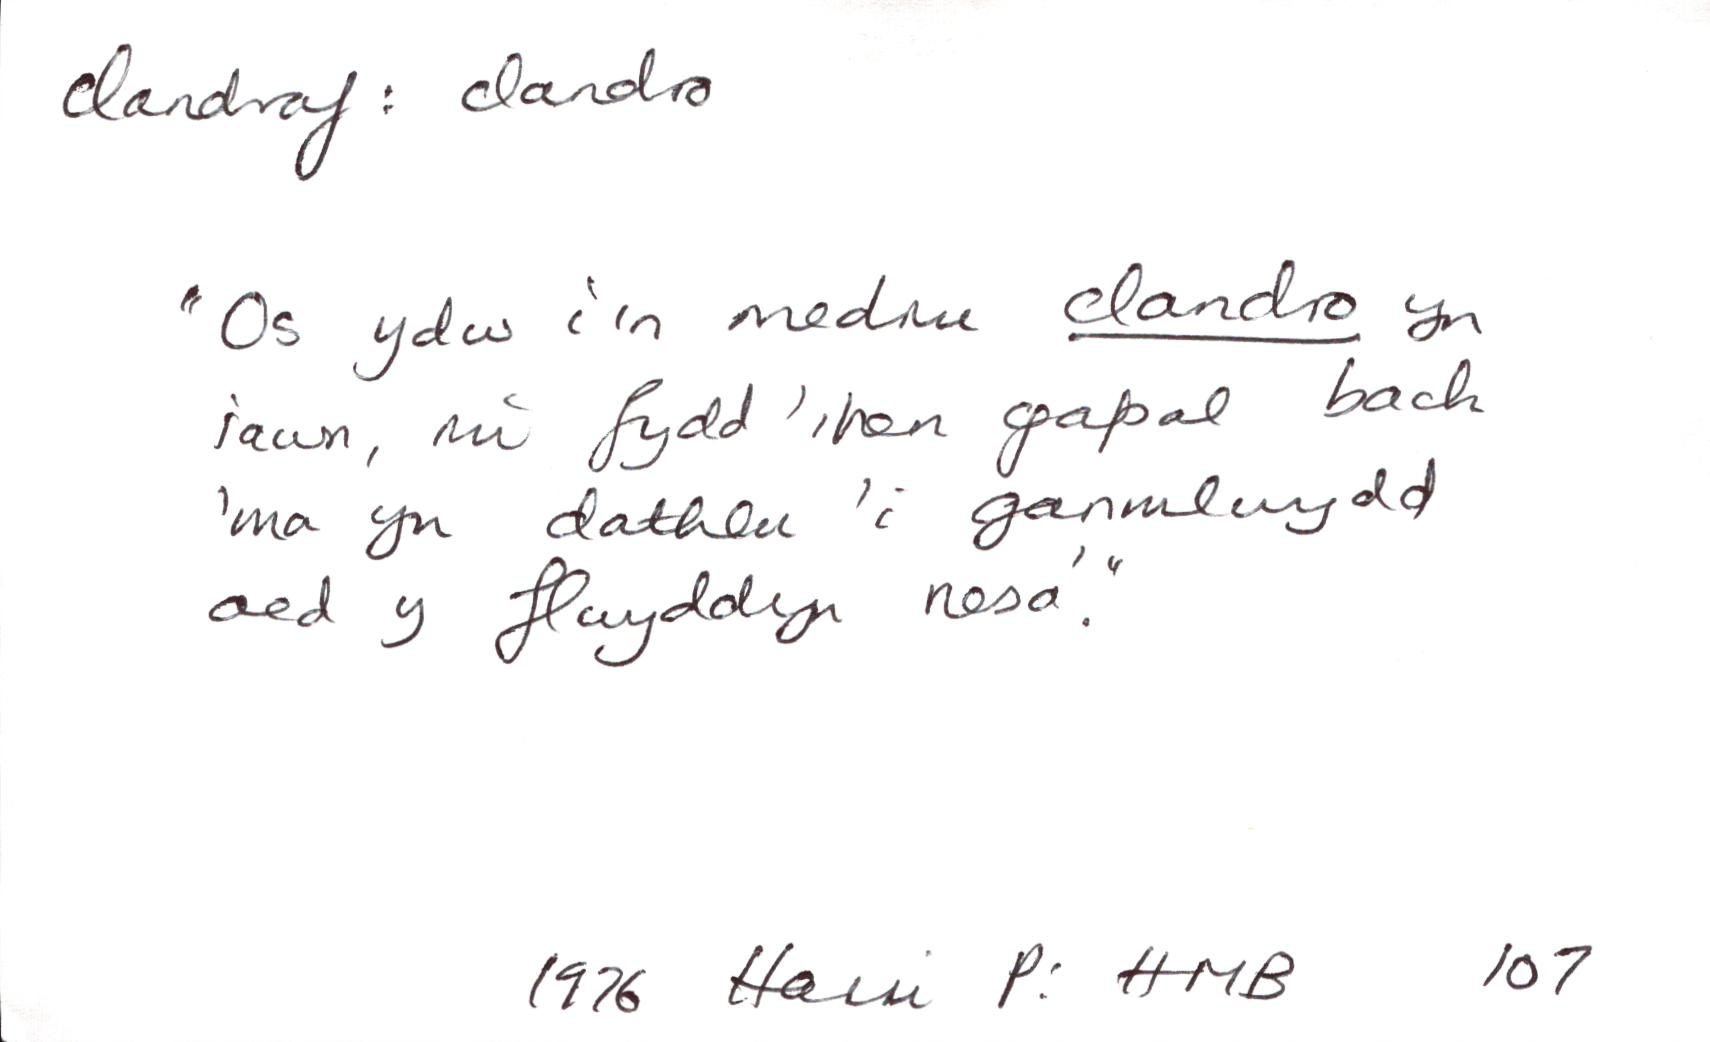 clandraf: clandro
"Os ydw i'n medru clandro yn
iawn, mi fydd 'rhen gapal bach
'ma yn dathlu 'i ganmlwydd
oed y flwyddyn nesa'."
1976 Harri P: HMB 107